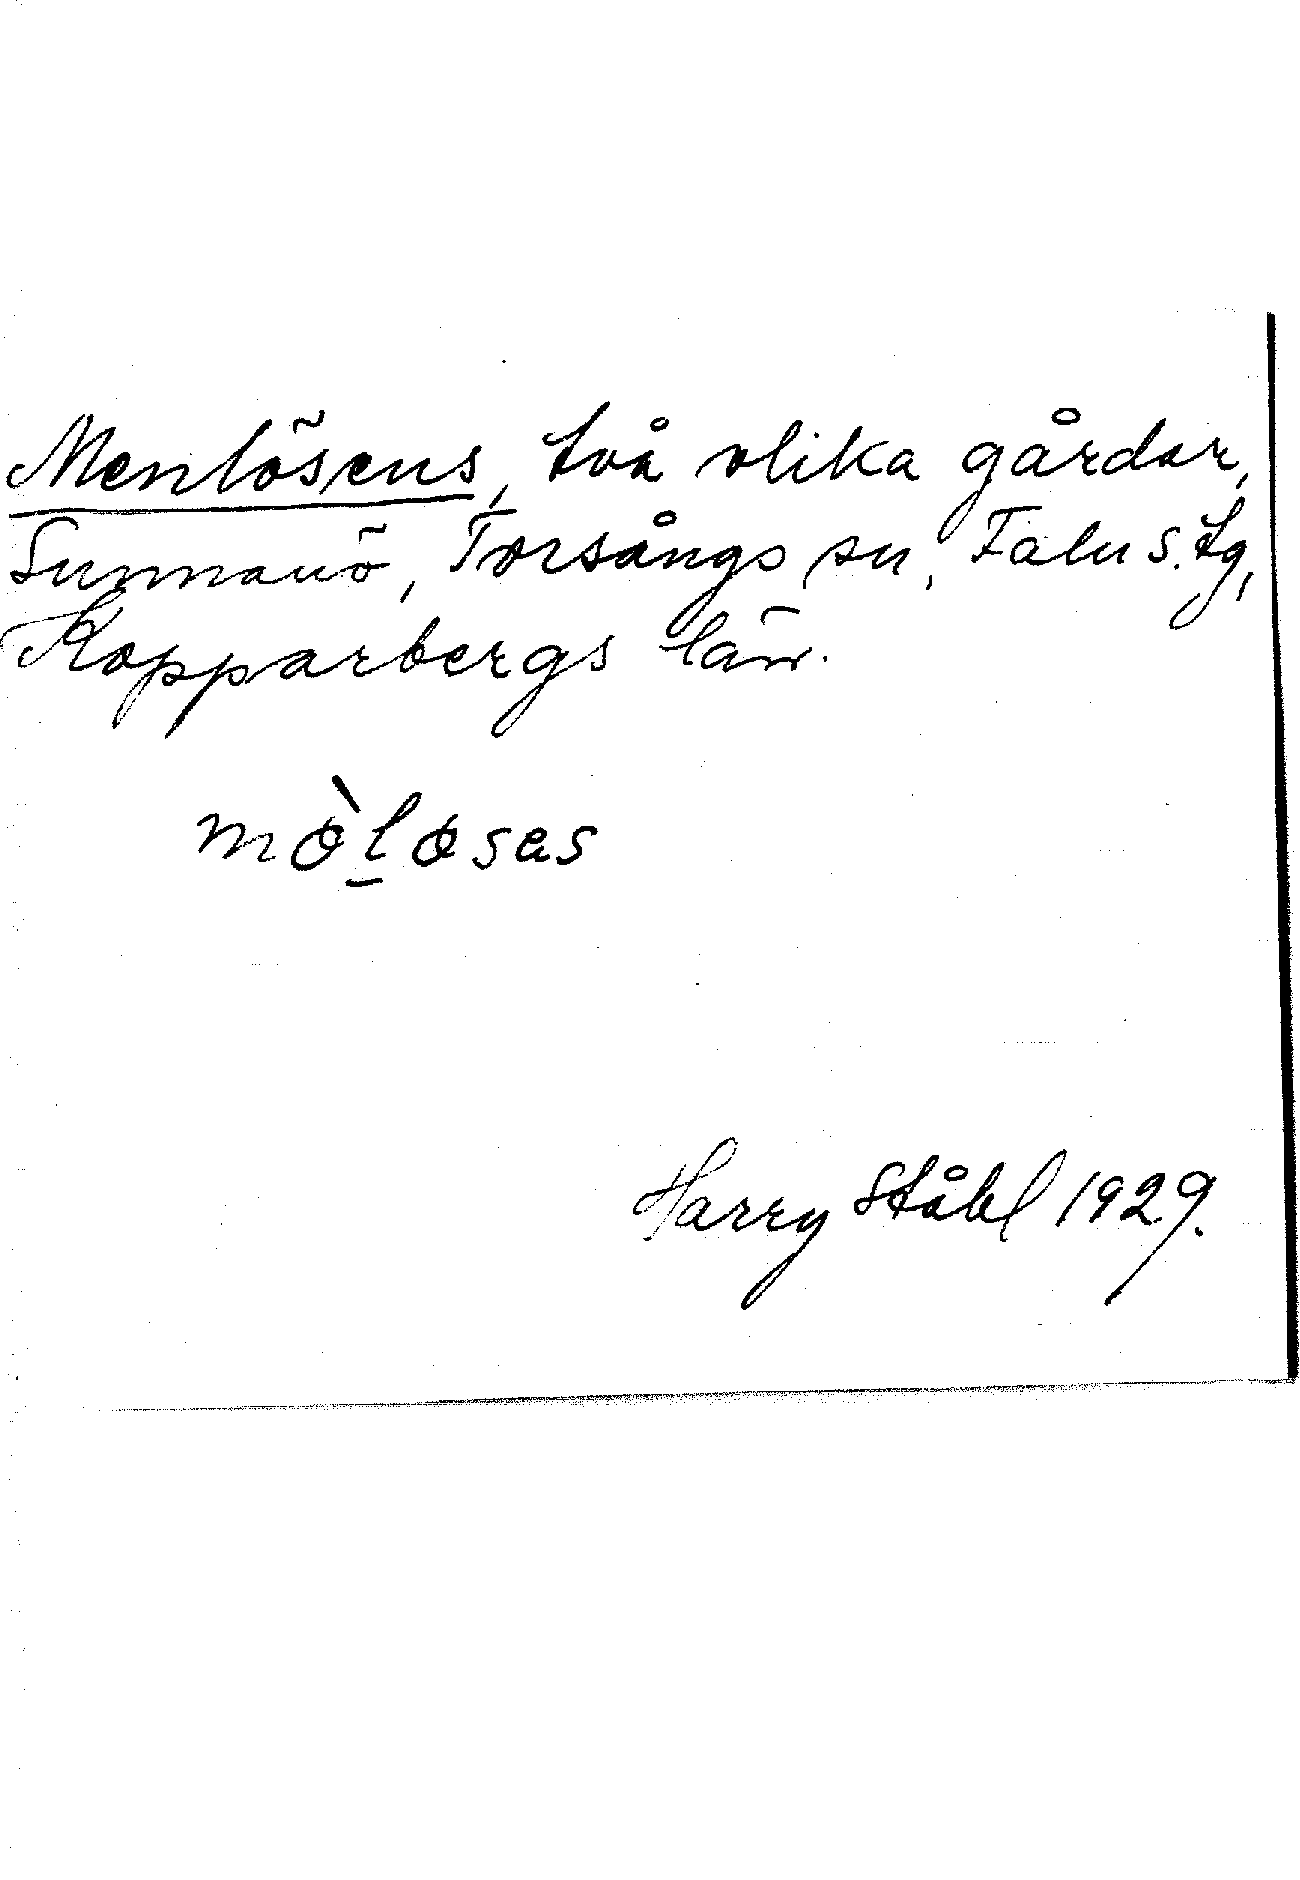 Menlösens, två olika gårdar,
Sunnanö, Torsångs sn, Falu s. tg,
Kopparbergs län.
mòl̠osas
Harry Ståhl 1929.